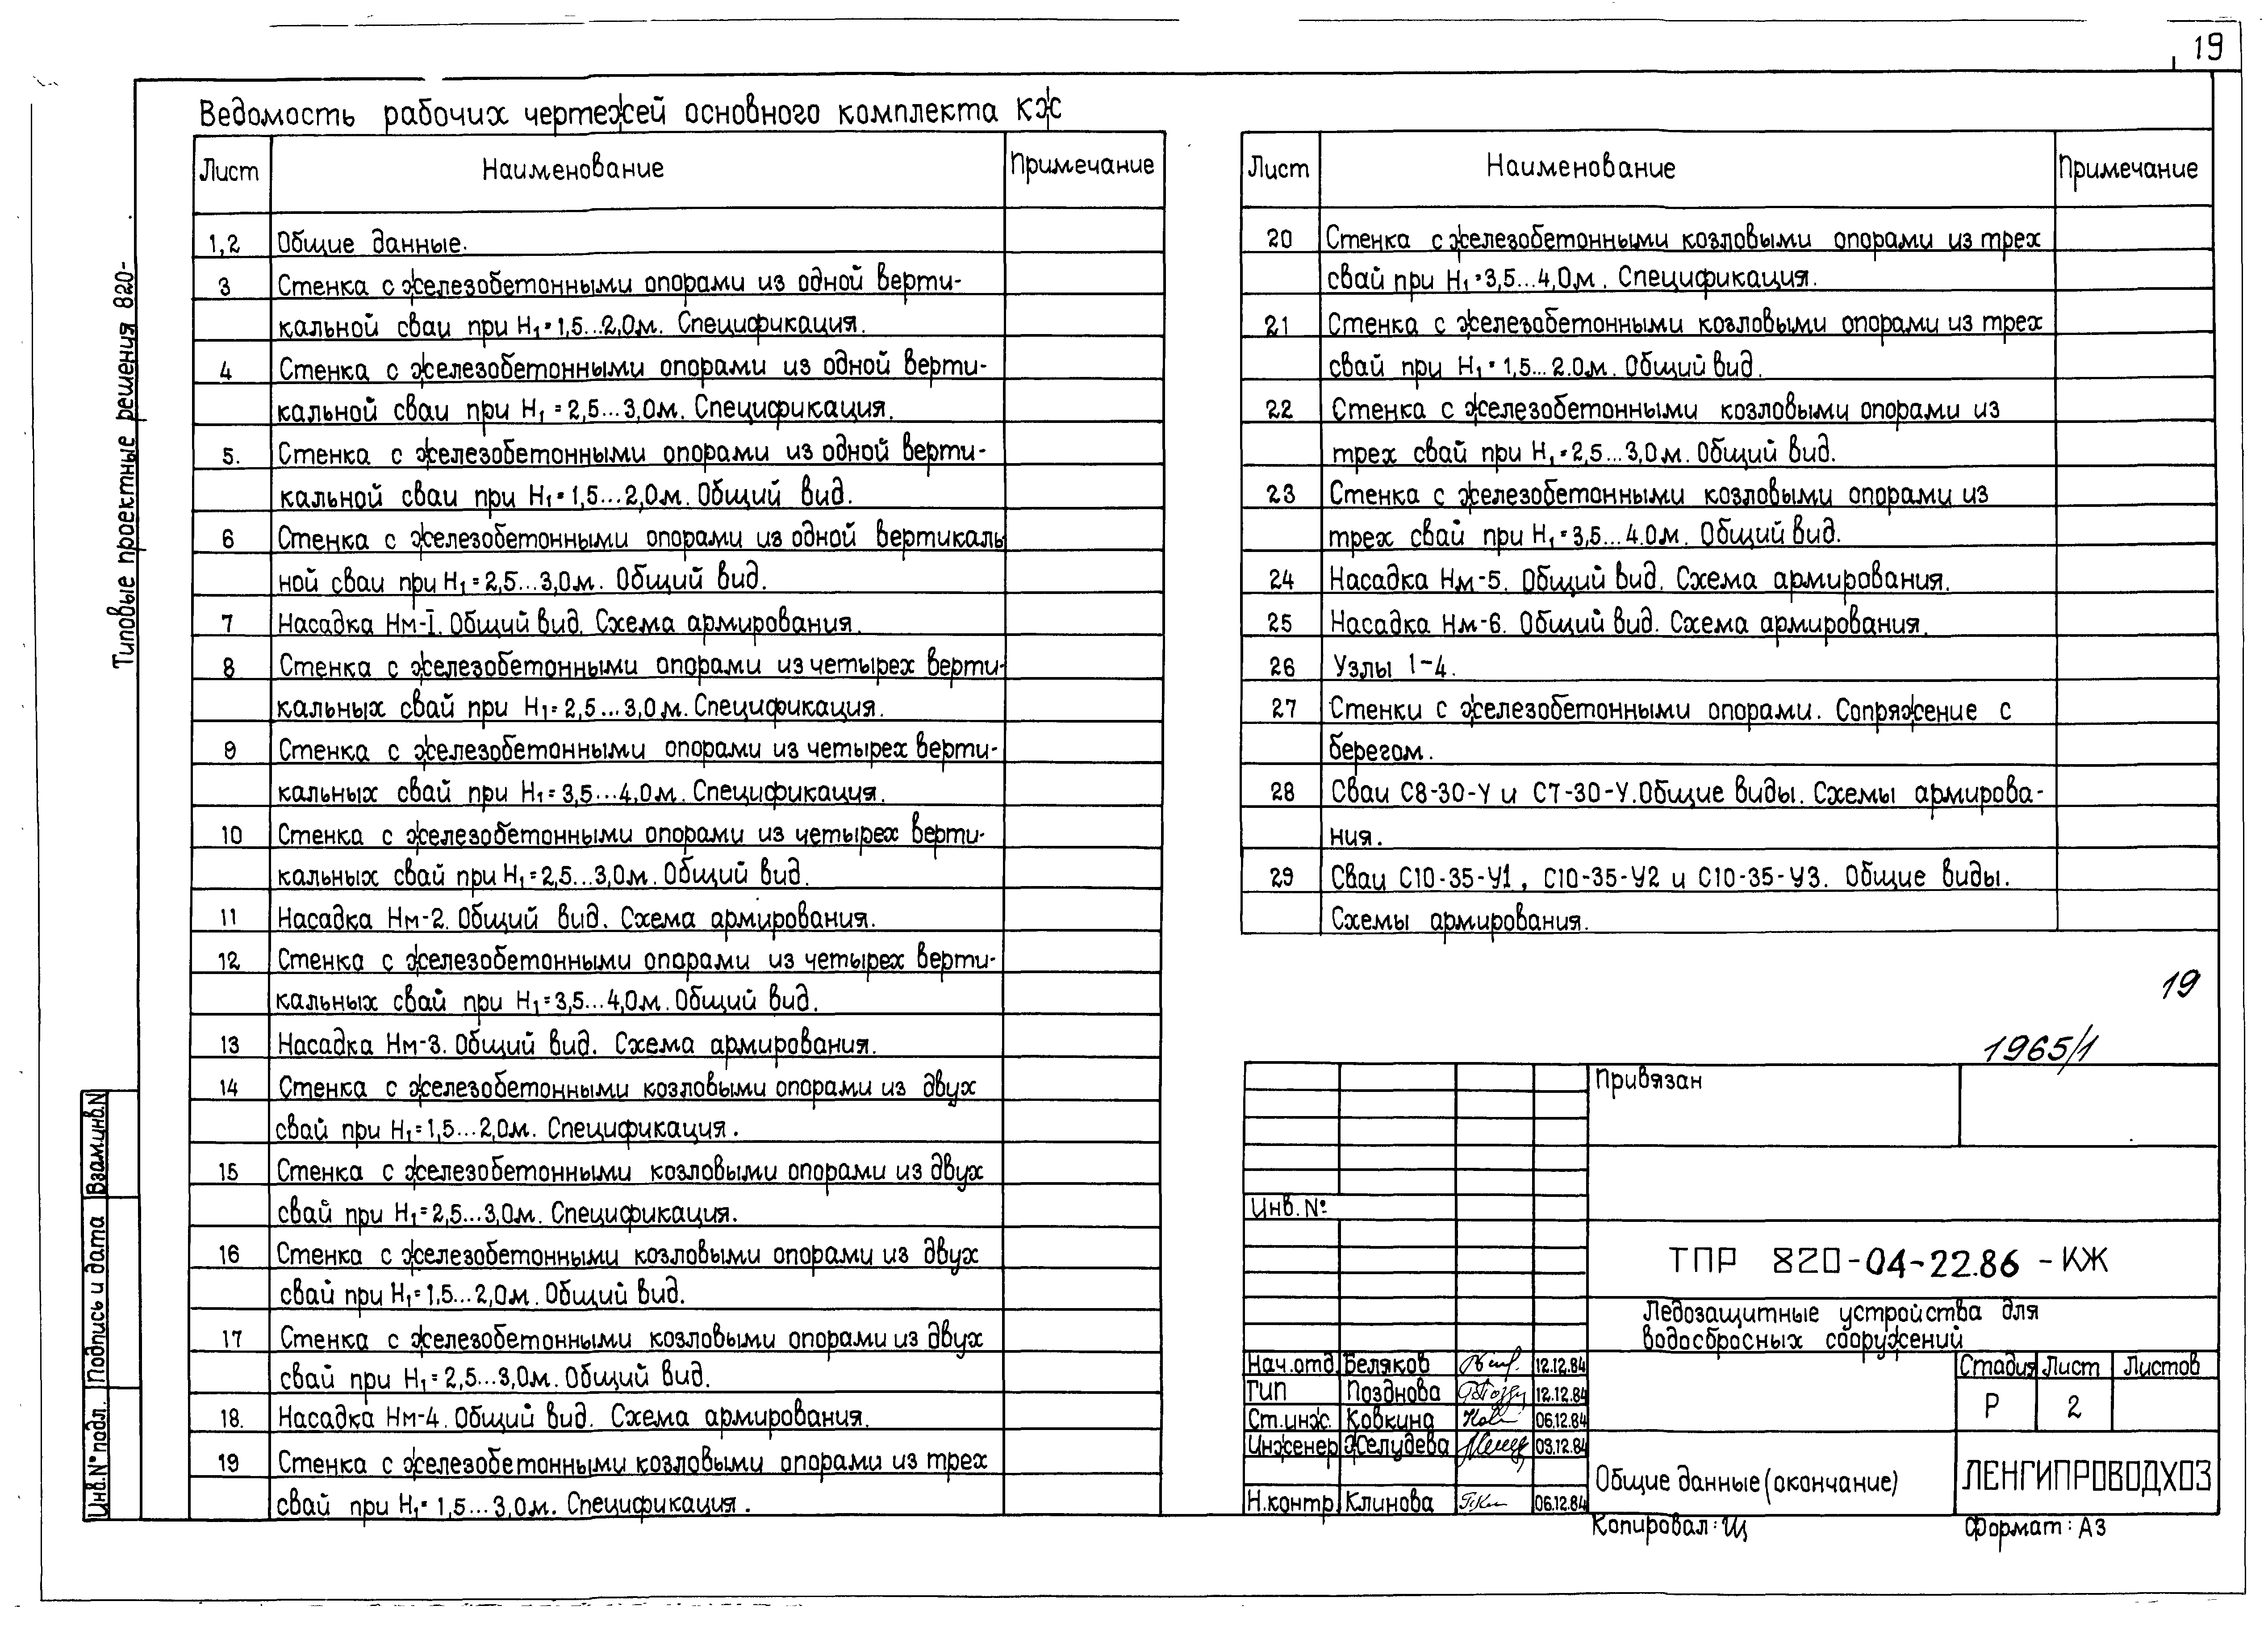 19
Ведомость рабочих чертежей основного комплекта КЖ
Лист Наименование Примечание
1,2 Общие данные.
3 Стенка с железобетонными опорами из одной верти-
кальной сваи при H₁=1,5...2,0м. Спецификация.
4 Стенка с железобетонными опорами из одной верти-
кальной сваи при H₁=2,5...3,0м. Спецификация.
5. Стенка с железобетонными опорами из одной верти-
кальной сваи при H₁=1,5...2,0м. Общий вид.
6 Стенка с железобетонными опорами из одной вертикаль
ной сваи при H₁=2,5...3,0м. Общий вид.
7 Насадка Нм-I. Общий вид. Схема армирования.
8 Стенка с железобетонными опорами из четырех верти-
кальных свай при H₁=2,5...3,0м. Спецификация.
9 Стенка с железобетонными опорами из четырех верти-
кальных свай при H₁=3,5...4,0м. Спецификация.
10 Стенка с железобетонными опорами из четырех верти-
кальных свай при H₁=2,5...3,0м. Общий вид.
11 Насадка Нм-2. Общий вид. Схема армирования.
12 Стенка с железобетонными опорами из четырех верти-
кальных свай при H₁=3,5...4,0м. Общий вид.
13 Насадка Нм-3. Общий вид. Схема армирования.
14 Стенка с железобетонными козловыми опорами из двух
свай при H₁=1,5...2,0м. Спецификация.
15 Стенка с железобетонными козловыми опорами из двух
свай при H₁=2,5...3,0м. Спецификация.
16 Стенка с железобетонными козловыми опорами из двух
свай при H₁=1,5...2,0м. Общий вид.
17 Стенка с железобетонными козловыми опорами из двух
свай при H₁=2,5...3,0м. Общий вид.
18. Насадка Нм-4. Общий вид. Схема армирования.
19 Стенка с железобетонными козловыми опорами из трех
свай при H₁=1,5...3,0м. Спецификация.
Лист Наименование Примечание
20 Стенка с железобетонными козловыми опорами из трех
свай при H₁=3,5...4,0м. Спецификация.
21 Стенка с железобетонными козловыми опорами из трех
свай при H₁=1,5...2.0м. Общий вид.
22 Стенка с железобетонными козловыми опорами из
трех свай при H₁=2,5...3,0м. Общий вид.
23 Стенка с железобетонными козловыми опорами из
трех свай при H₁=3,5...4.0м. Общий вид.
24 Насадка Нм-5. Общий вид. Схема армирования.
25 Насадка Нм-6. Общий вид. Схема армирования.
26 Узлы 1-4.
27 Стенки с железобетонными опорами. Сопряжение с
берегом.
28 Сваи С8-30-У и С7-30-У. Общие виды. Схемы армирова-
ния.
29 Сваи С10-35-У1, С10-35-У2 и С10-35-У3. Общие виды.
Схемы армирования.
19
1965/1
Привязан
Инв. №
ТПР 820-04-22.86 -КЖ
Ледозащитные устройства для
водосбросных сооружений
Нач.отд. Беляков 12.12.84
Гип Позднова 12.12.84
Ст.инж. Ковкина 06.12.84
Инженер Желудева 03.12.84
Н.контр. Клинова 06.12.84
Стадия Лист Листов
Р 2
Общие данные (окончание)
ЛЕНГИПРОВОДХОЗ
Копировал: Щ
Формат: А3
Типовые проектные решения 820-
Взам.инв.N
Подпись и дата
Инв.№ подл.